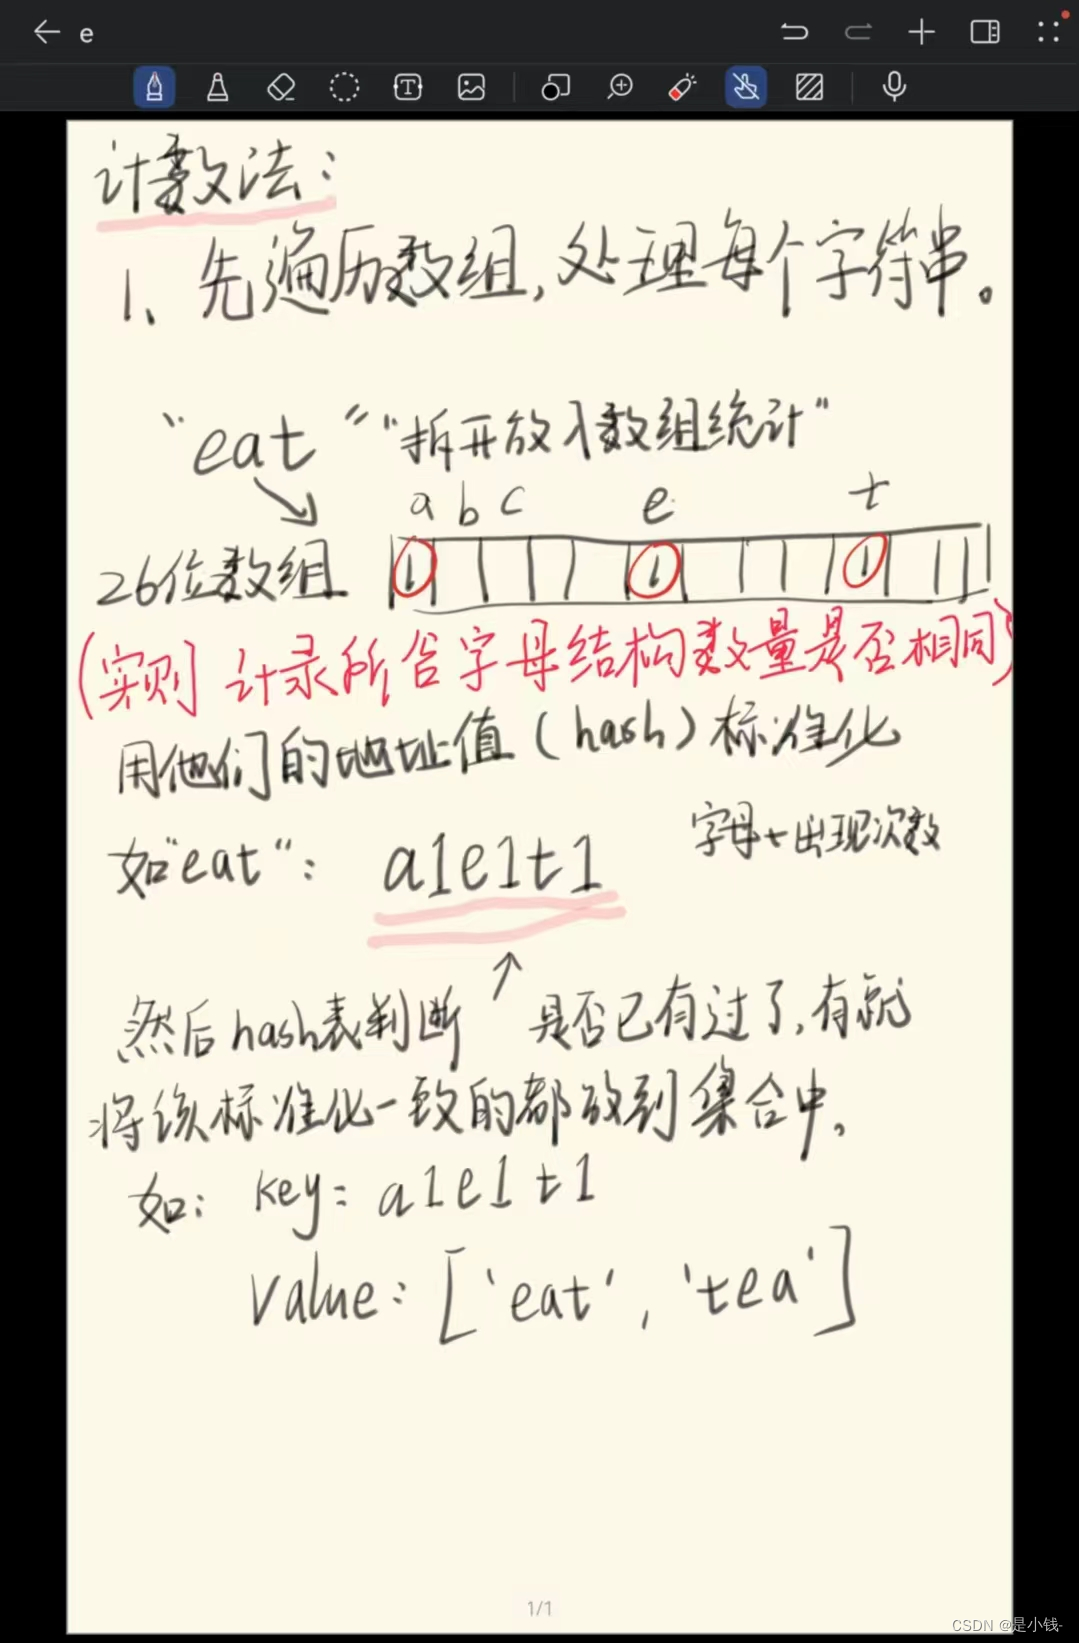 e
计数法:
1、先遍历数组,处理每个字符串。
"eat" "拆开放入数组统计"
a b c e t
26位数组 1 1 1
(实则 计录所含字母结构数量是否相同)
用他们的地址值(hash)标准化
如"eat": a1e1t1 字母+出现次数
然后hash表判断 ↑ 是否已有过了,有就
将该标准化一致的都放到集合中。
如: key= a1e1t1
Value: ['eat', 'tea']
1/1
CSDN @是小钱-